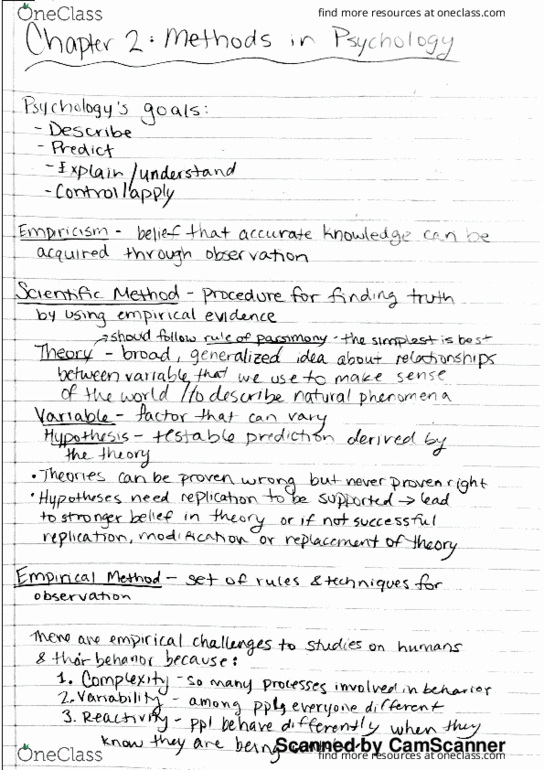 OneClass find more resources at oneclass.com
Chapter 2: Methods in Psychology
Psychology's goals:
- Describe
- Predict
- Explain/understand
- Control/apply
Empiricism - belief that accurate knowledge can be
acquired through observation
Scientific Method - procedure for finding truth
by using empirical evidence
→ should follow rule of parsimony - the simplest is best
Theory - broad, generalized idea about relationships
between variable that we use to make sense
of the world / to describe natural phenomena
Variable - factor that can vary
Hypothesis - testable prediction derived by
the theory
• Theories can be proven wrong but never proven right
• Hypotheses need replication to be supported → lead
to stronger belief in theory or if not successful
replication, modification or replacement of theory
Empirical Method - set of rules & techniques for
observation
There are empirical challenges to studies on humans
& their behavior because:
1. Complexity - so many processes involved in behavior
2. Variability - among ppl, everyone different
3. Reactivity - ppl behave differently when they
know they are being
Scanned by CamScanner
OneClass find more resources at oneclass.com